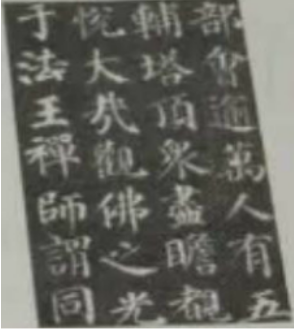 部會逾萬人有五
輔塔頂眾盡瞻覩
悅大哉觀佛之光
于法王禪師謂同